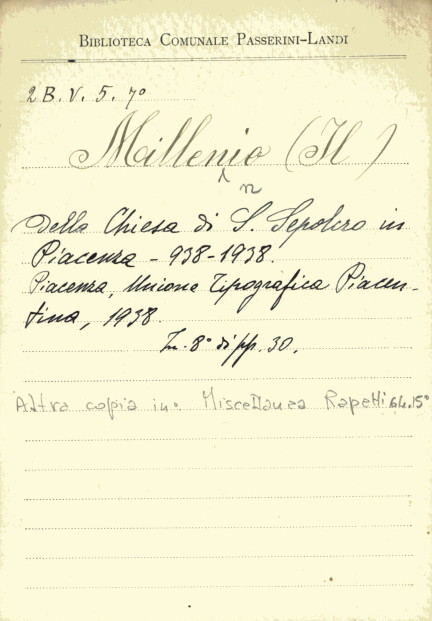 BIBLIOTECA COMUNALE PASSERINI-LANDI
2 B. V. 5. 7º
Millenio (Il)
n
della Chiesa di S. Sepolcro in
Piacenza - 938-1938.
Piacenza, Unione Tipografica Piacen-
tina, 1938.
In-8º di pp. 30.
Altra copia in: Miscellanea Rapetti 64.15º